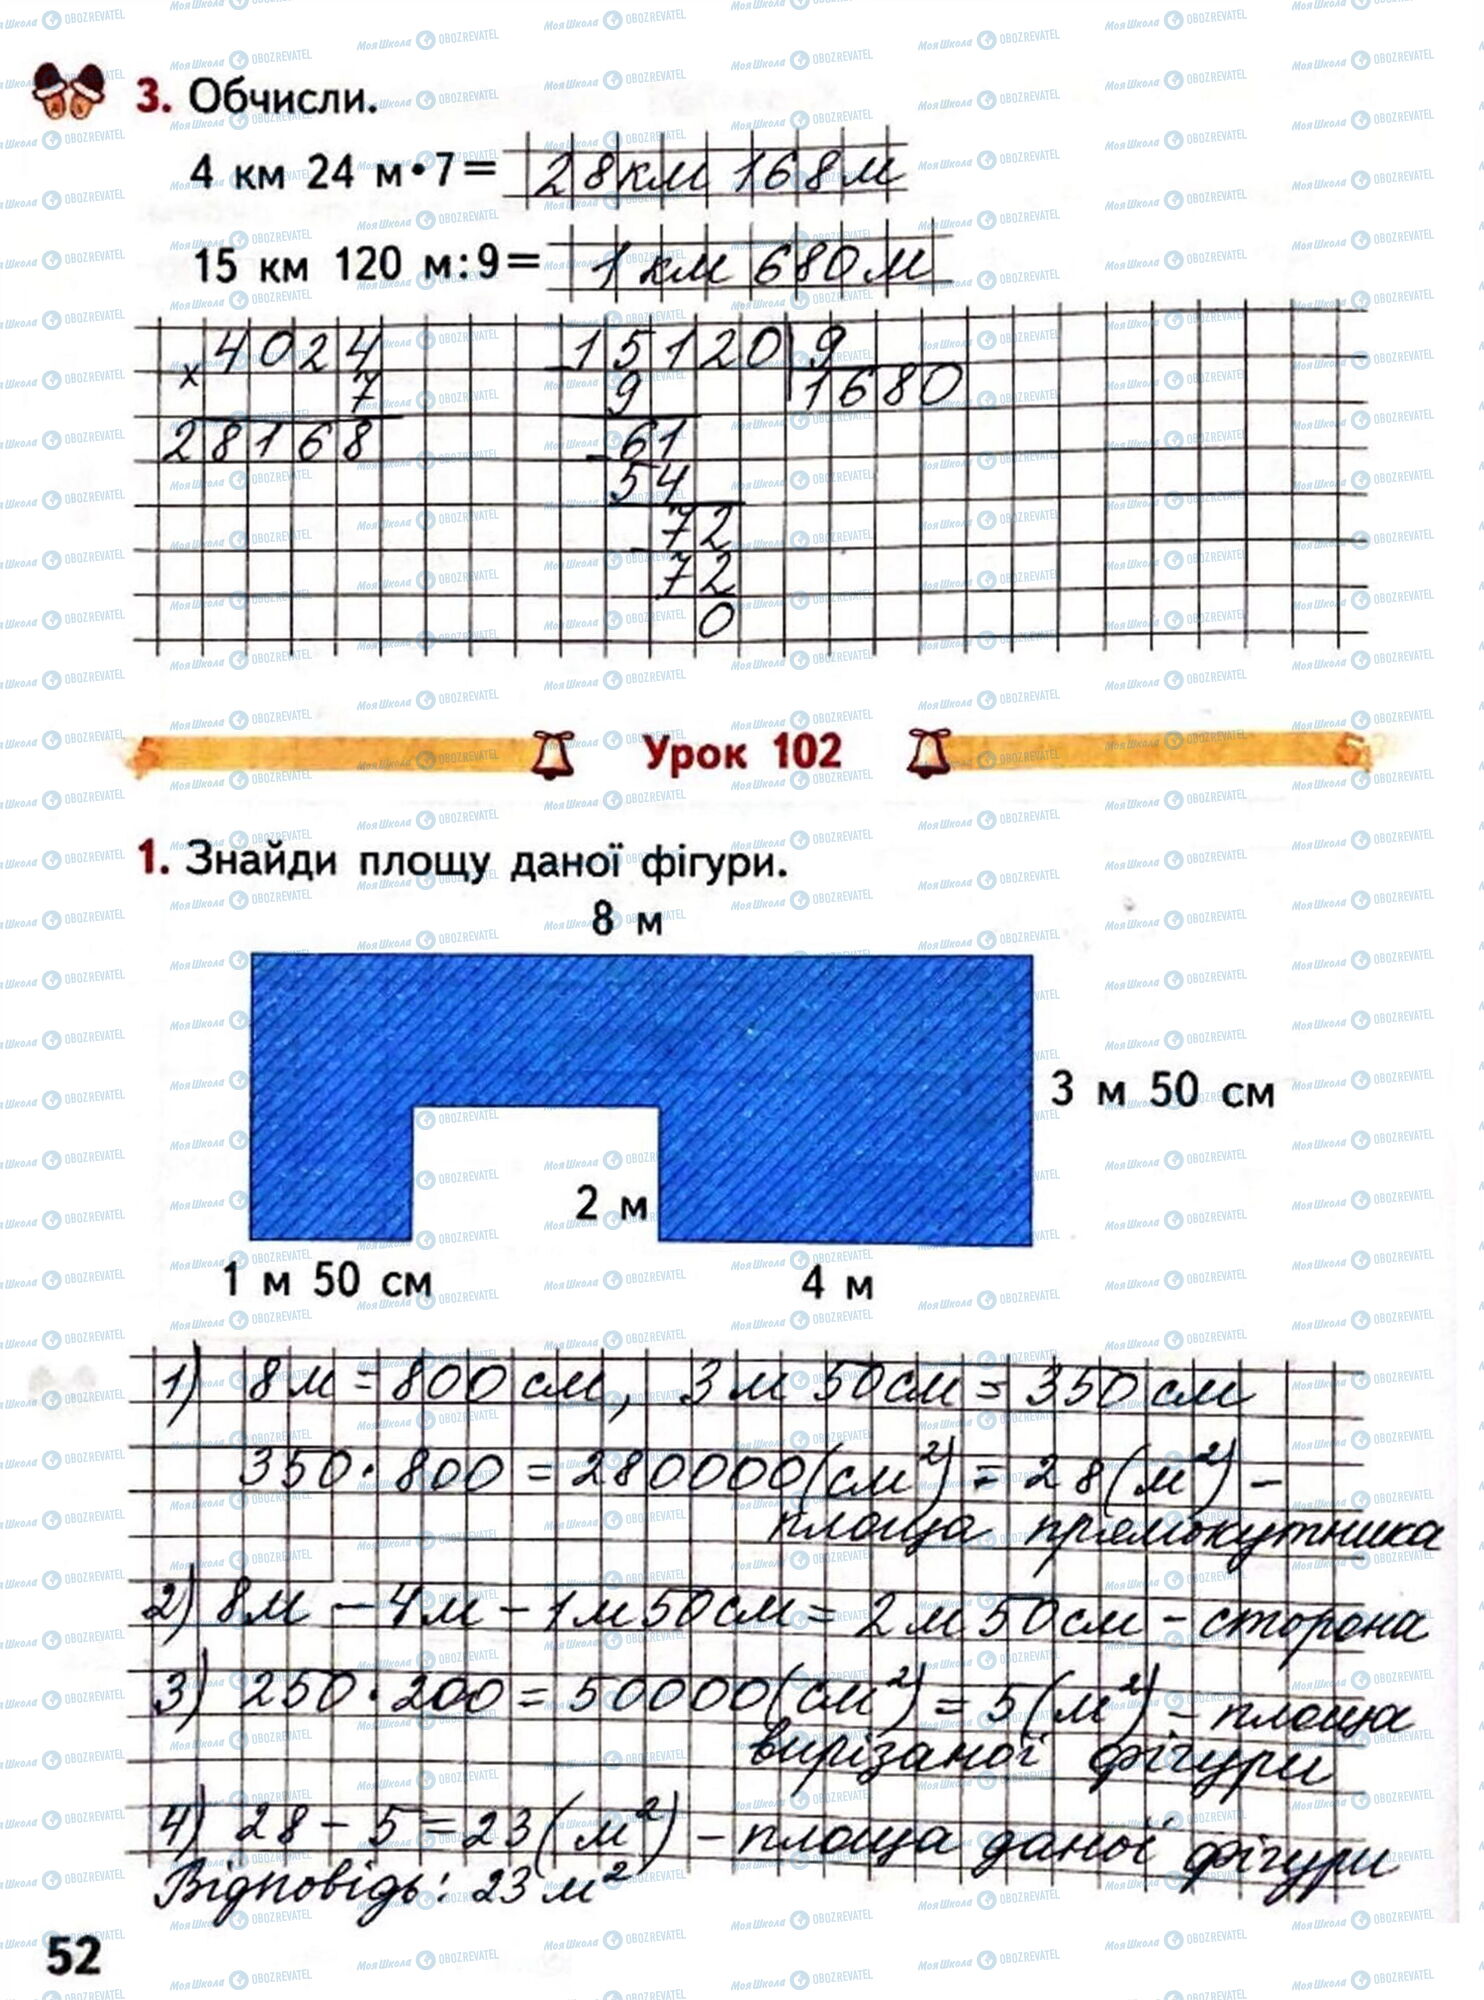 3. Обчисли.
4 км 24 м·7= 28км 168м
15 км 120 м:9= 1км 680м
×4024
7
28168
-15120|9
9 1680
-61
54
-72
72
0
Урок 102
1. Знайди площу даної фігури.
8 м
3 м 50 см
2 м
1 м 50 см
4 м
1) 8м = 800см, 3м 50см = 350см
350·800 = 280000(см²) = 28(м²) –
площа прямокутника
2) 8м – 4м – 1м50см = 2м50см – сторона
3) 250·200 = 50000(см²) = 5(м²) – площа
вирізаної фігури
4) 28 – 5 = 23(м²) – площа даної фігури
Відповідь: 23м²
52
МояШкола OBOZREVATEL